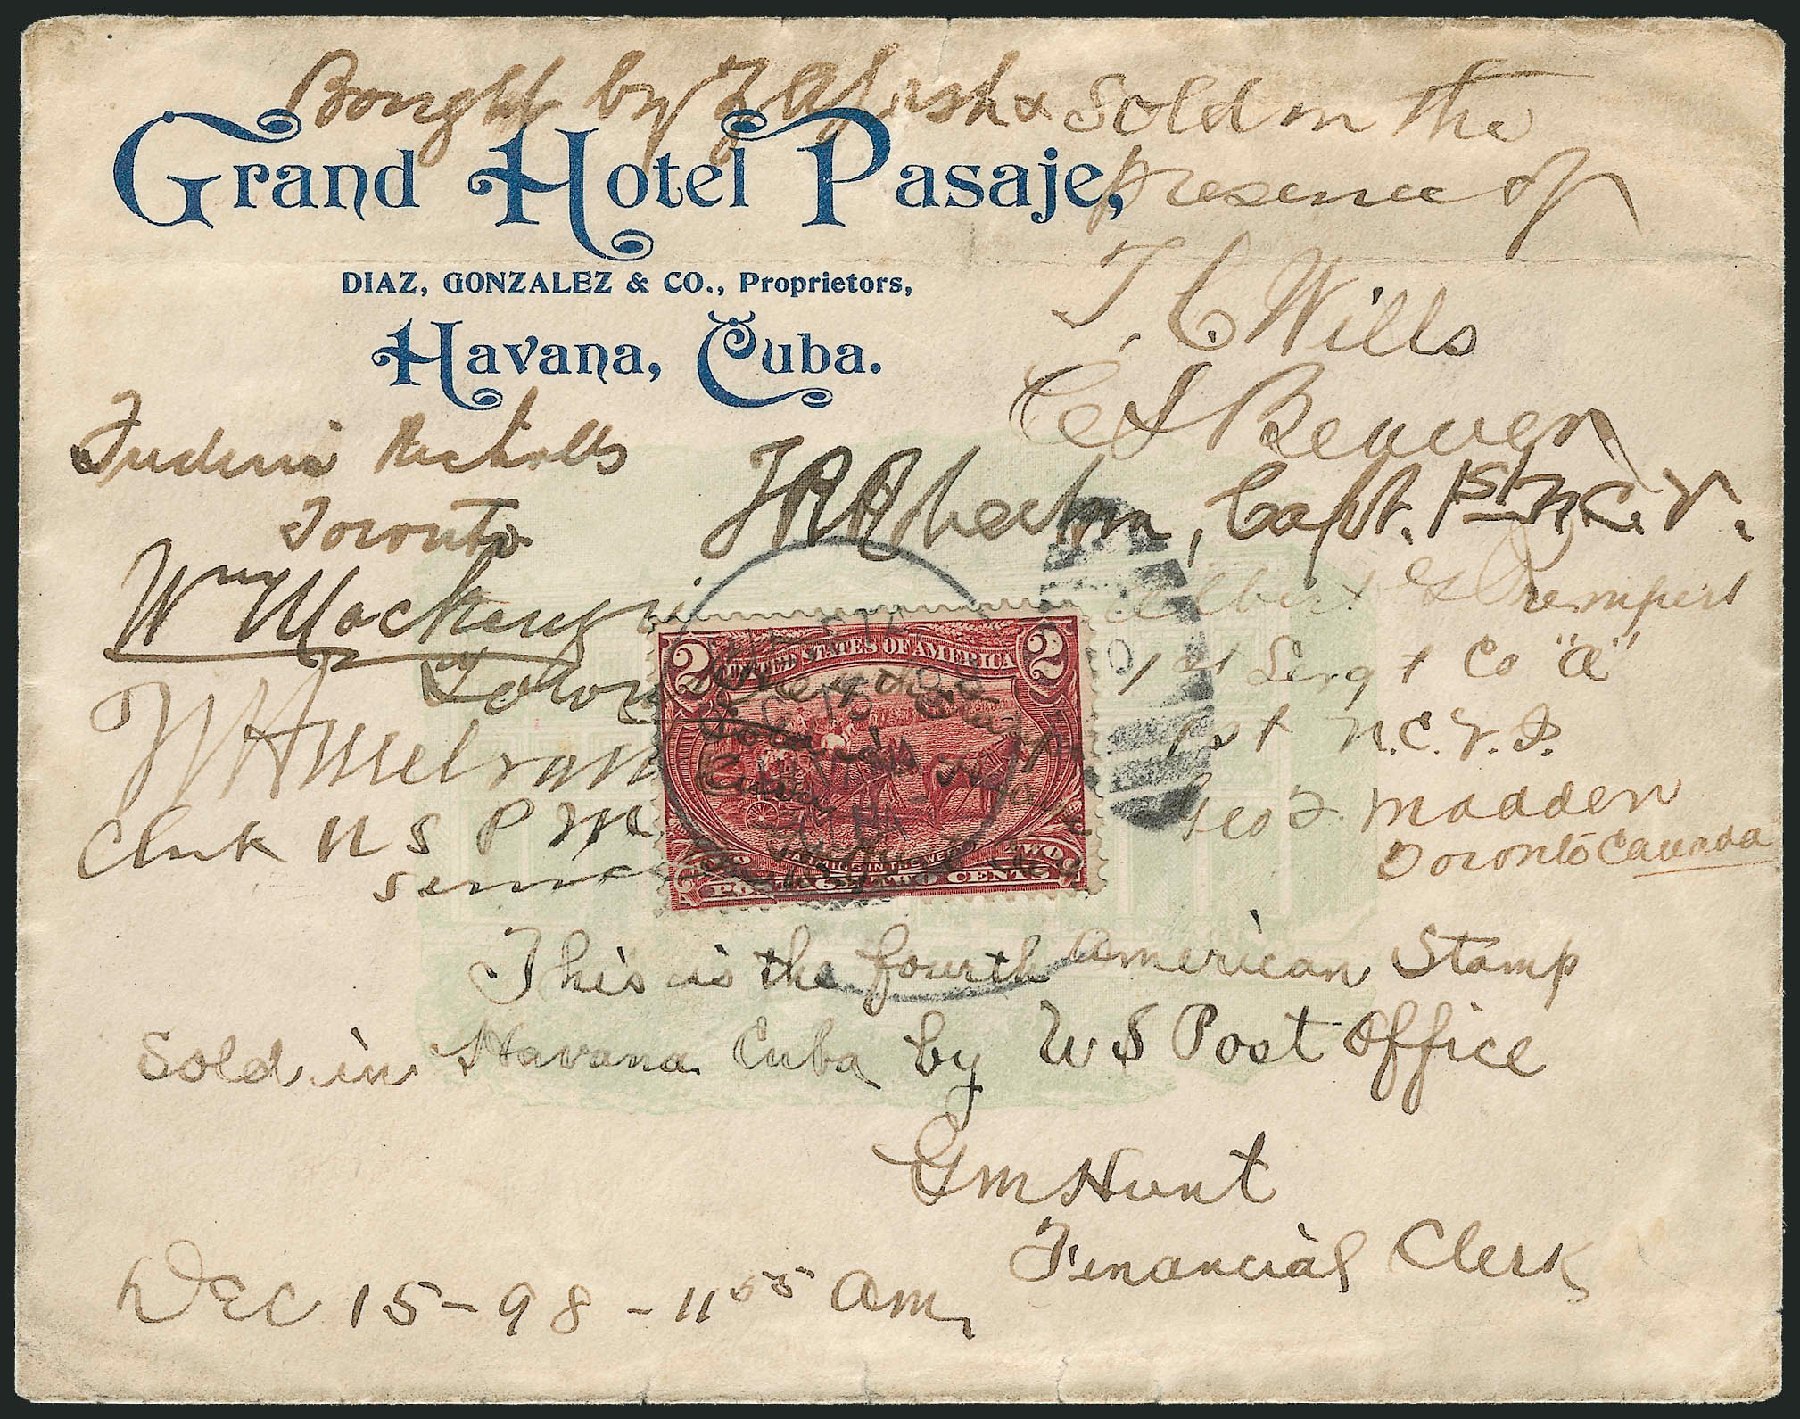 Bought by & Sold in the
presence of
Grand Hotel Pasaje,
DIAZ, GONZALEZ & CO., Proprietors,
Havana, Cuba.
T. C. Wills
C S Beaver
Frederic Nicholls
Toronto
Capt. 1st N.C.V.
Wm Mackenzie
Toronto
Albert
1st Sergt Co "A"
1st N.C.V.I.
Clerk U S P M
service
Geo F. Madden
Toronto Canada
2 UNITED STATES OF AMERICA 2
POSTAGE TWO CENTS
This is the fourth American Stamp
Sold in Havana Cuba by U S Post Office
GM Hunt
Financial Clerk
DEC 15-98-11 55 am,